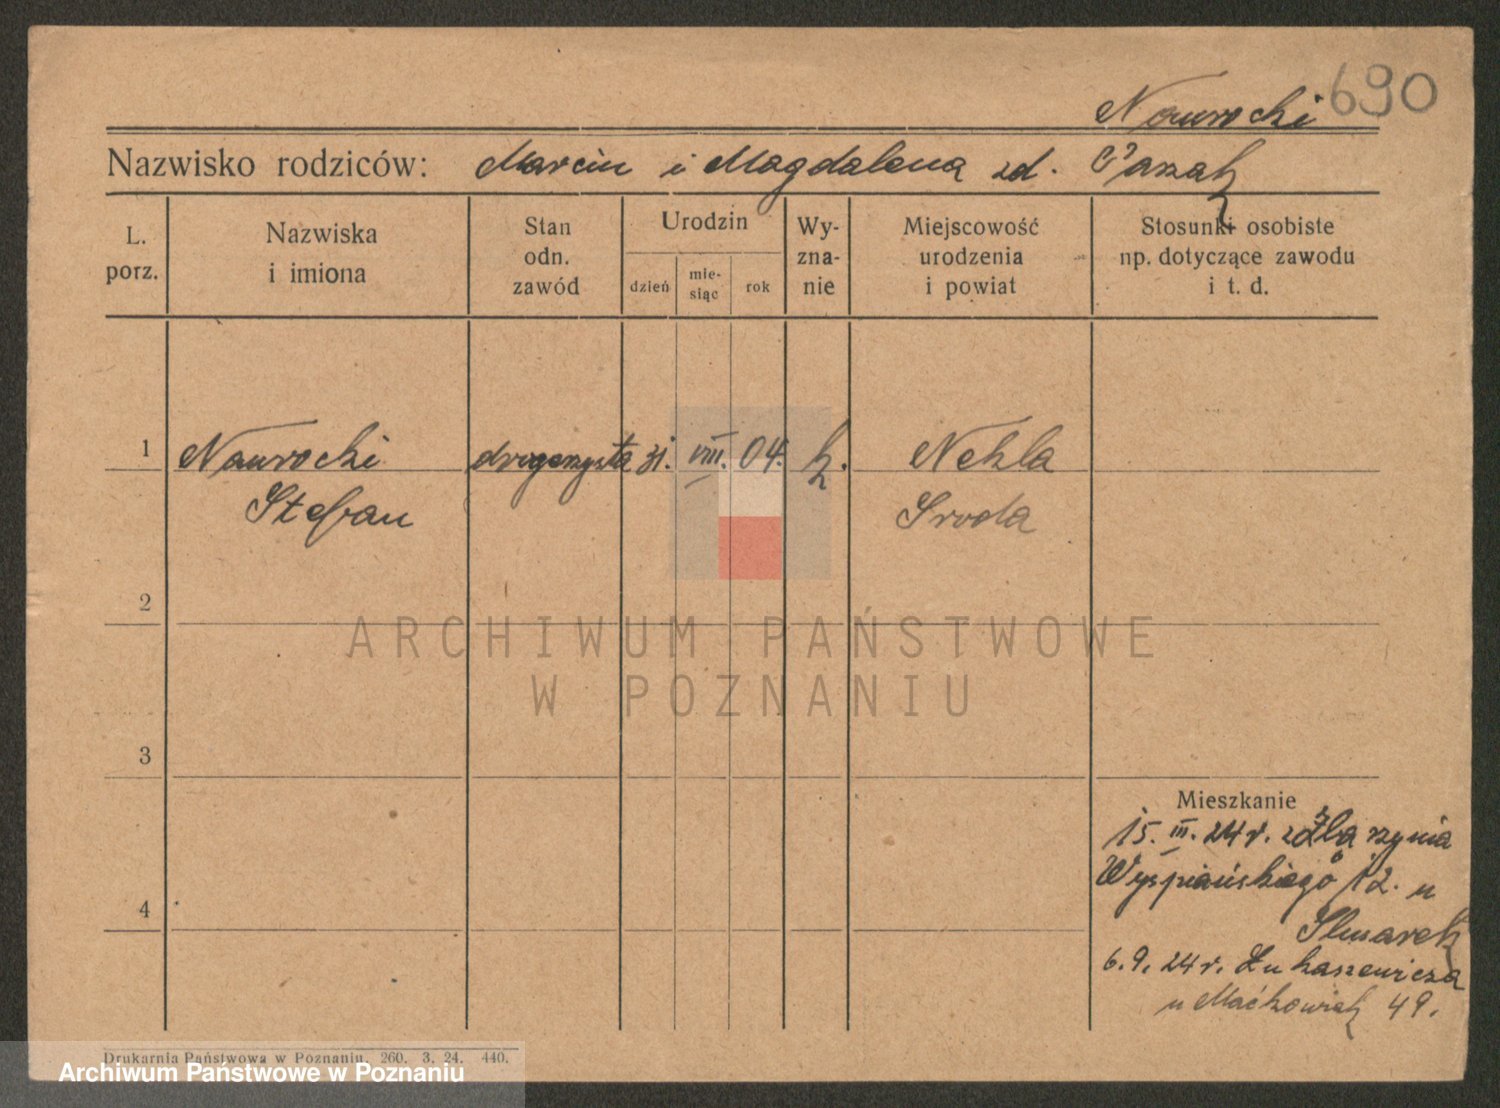 690
Nawrocki
Nazwisko rodziców: Marcin i Magdalena zd.
L. porz.
Nazwiska i imiona
Stan odn. zawód
Urodzin
dzień
mie- siąc
rok
Wy- zna- nie
Miejscowość urodzenia i powiat
Stosunki osobiste np. dotyczące zawodu i t. d.
1 Nawrocki drogerzysta 31. VIII. 04. k. Nekla
Stefan Sroda
2
ARCHIWUM PAŃSTWOWE
W POZNANIU
3
Mieszkanie
15. III. 24 r. z
Wyspiańskiego 12. u
4
Slusarek
6. 9. 24 r. Łukaszewicza
u Maćkowiak 49.
Drukarnia Państwowa w Poznaniu. 260. 3. 24. 440.
Archiwum Państwowe w Poznaniu